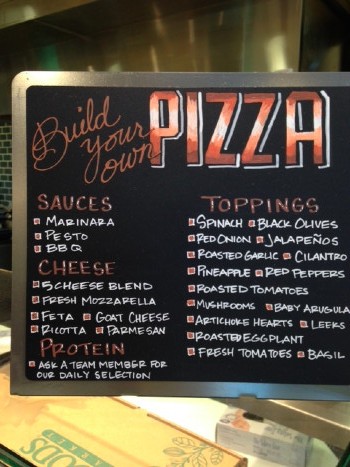 Build your own PIZZA
SAUCES
MARINARA
PESTO
BBQ
CHEESE
5 CHEESE BLEND
FRESH MOZZARELLA
FETA GOAT CHEESE
RICOTTA PARMESAN
PROTEIN
ASK A TEAM MEMBER FOR
OUR DAILY SELECTION
TOPPINGS
SPINACH BLACK OLIVES
RED ONION JALAPEÑOS
ROASTED GARLIC CILANTRO
PINEAPPLE RED PEPPERS
ROASTED TOMATOES
MUSHROOMS BABY ARUGULA
ARTICHOKE HEARTS LEEKS
ROASTED EGGPLANT
FRESH TOMATOES BASIL